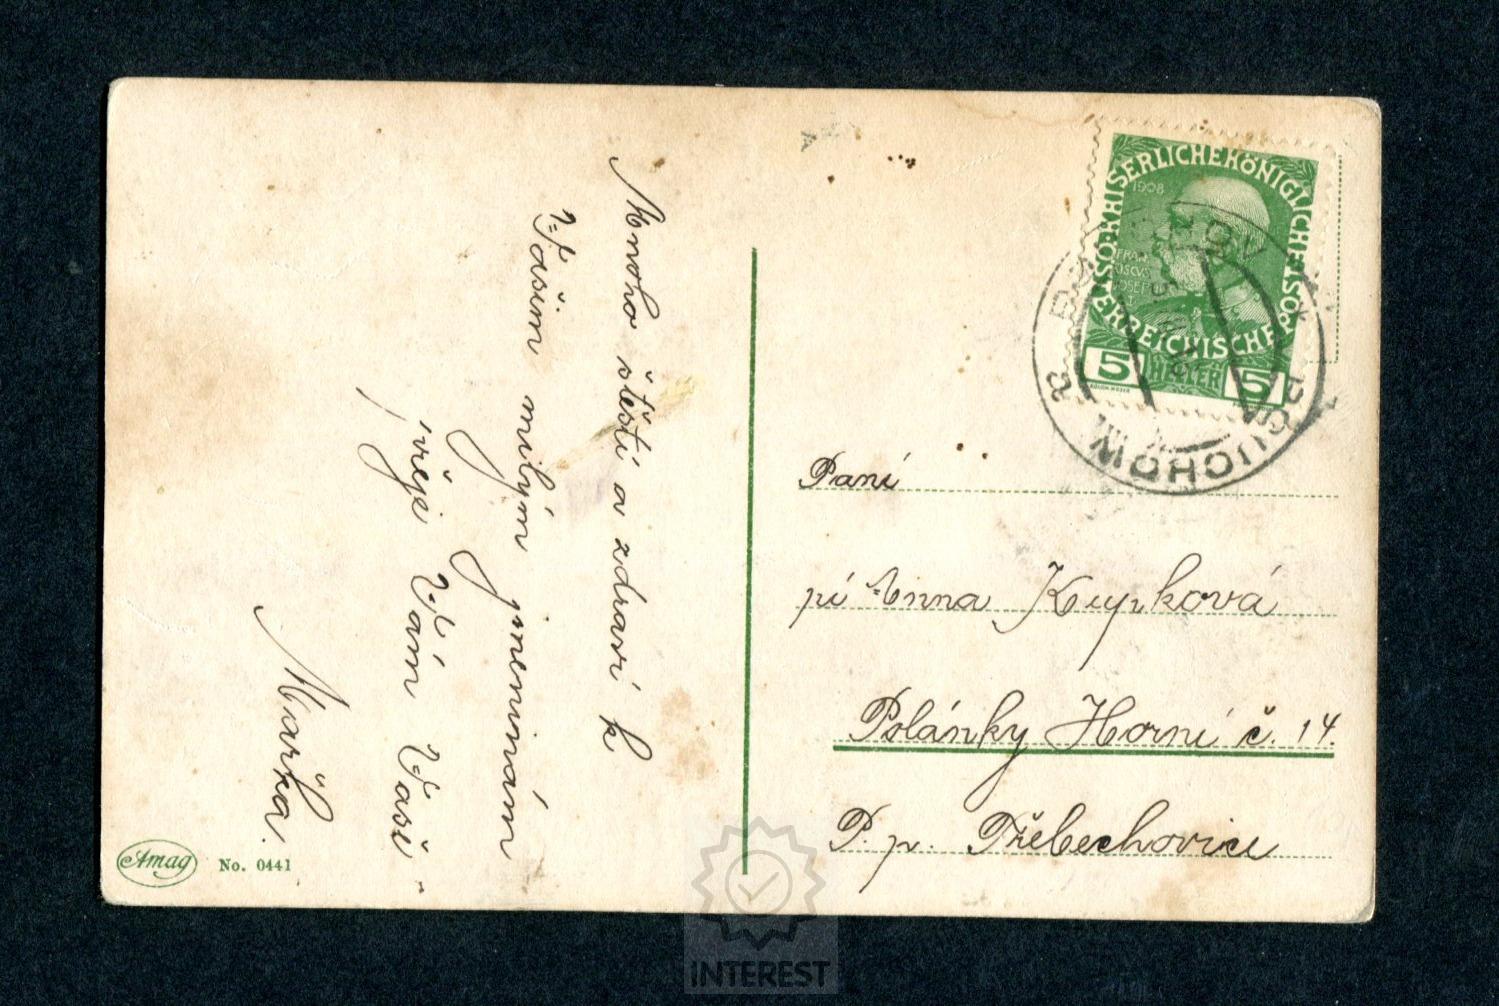 Mnoho štěstí a zdraví k
Vašim milým jmeninám
přeje Vám Vaše
Mařka.
Amag
No. 0441
KAISERLICHE KÖNIGLICHE ÖSTERREICHISCHE POST
1908
FRAN
CISCVS
IOSEPH
5 HELLER 5
Paní
pí Anna Kupková
Polánky Horní č. 14.
P. p. Třebechovice
INTEREST